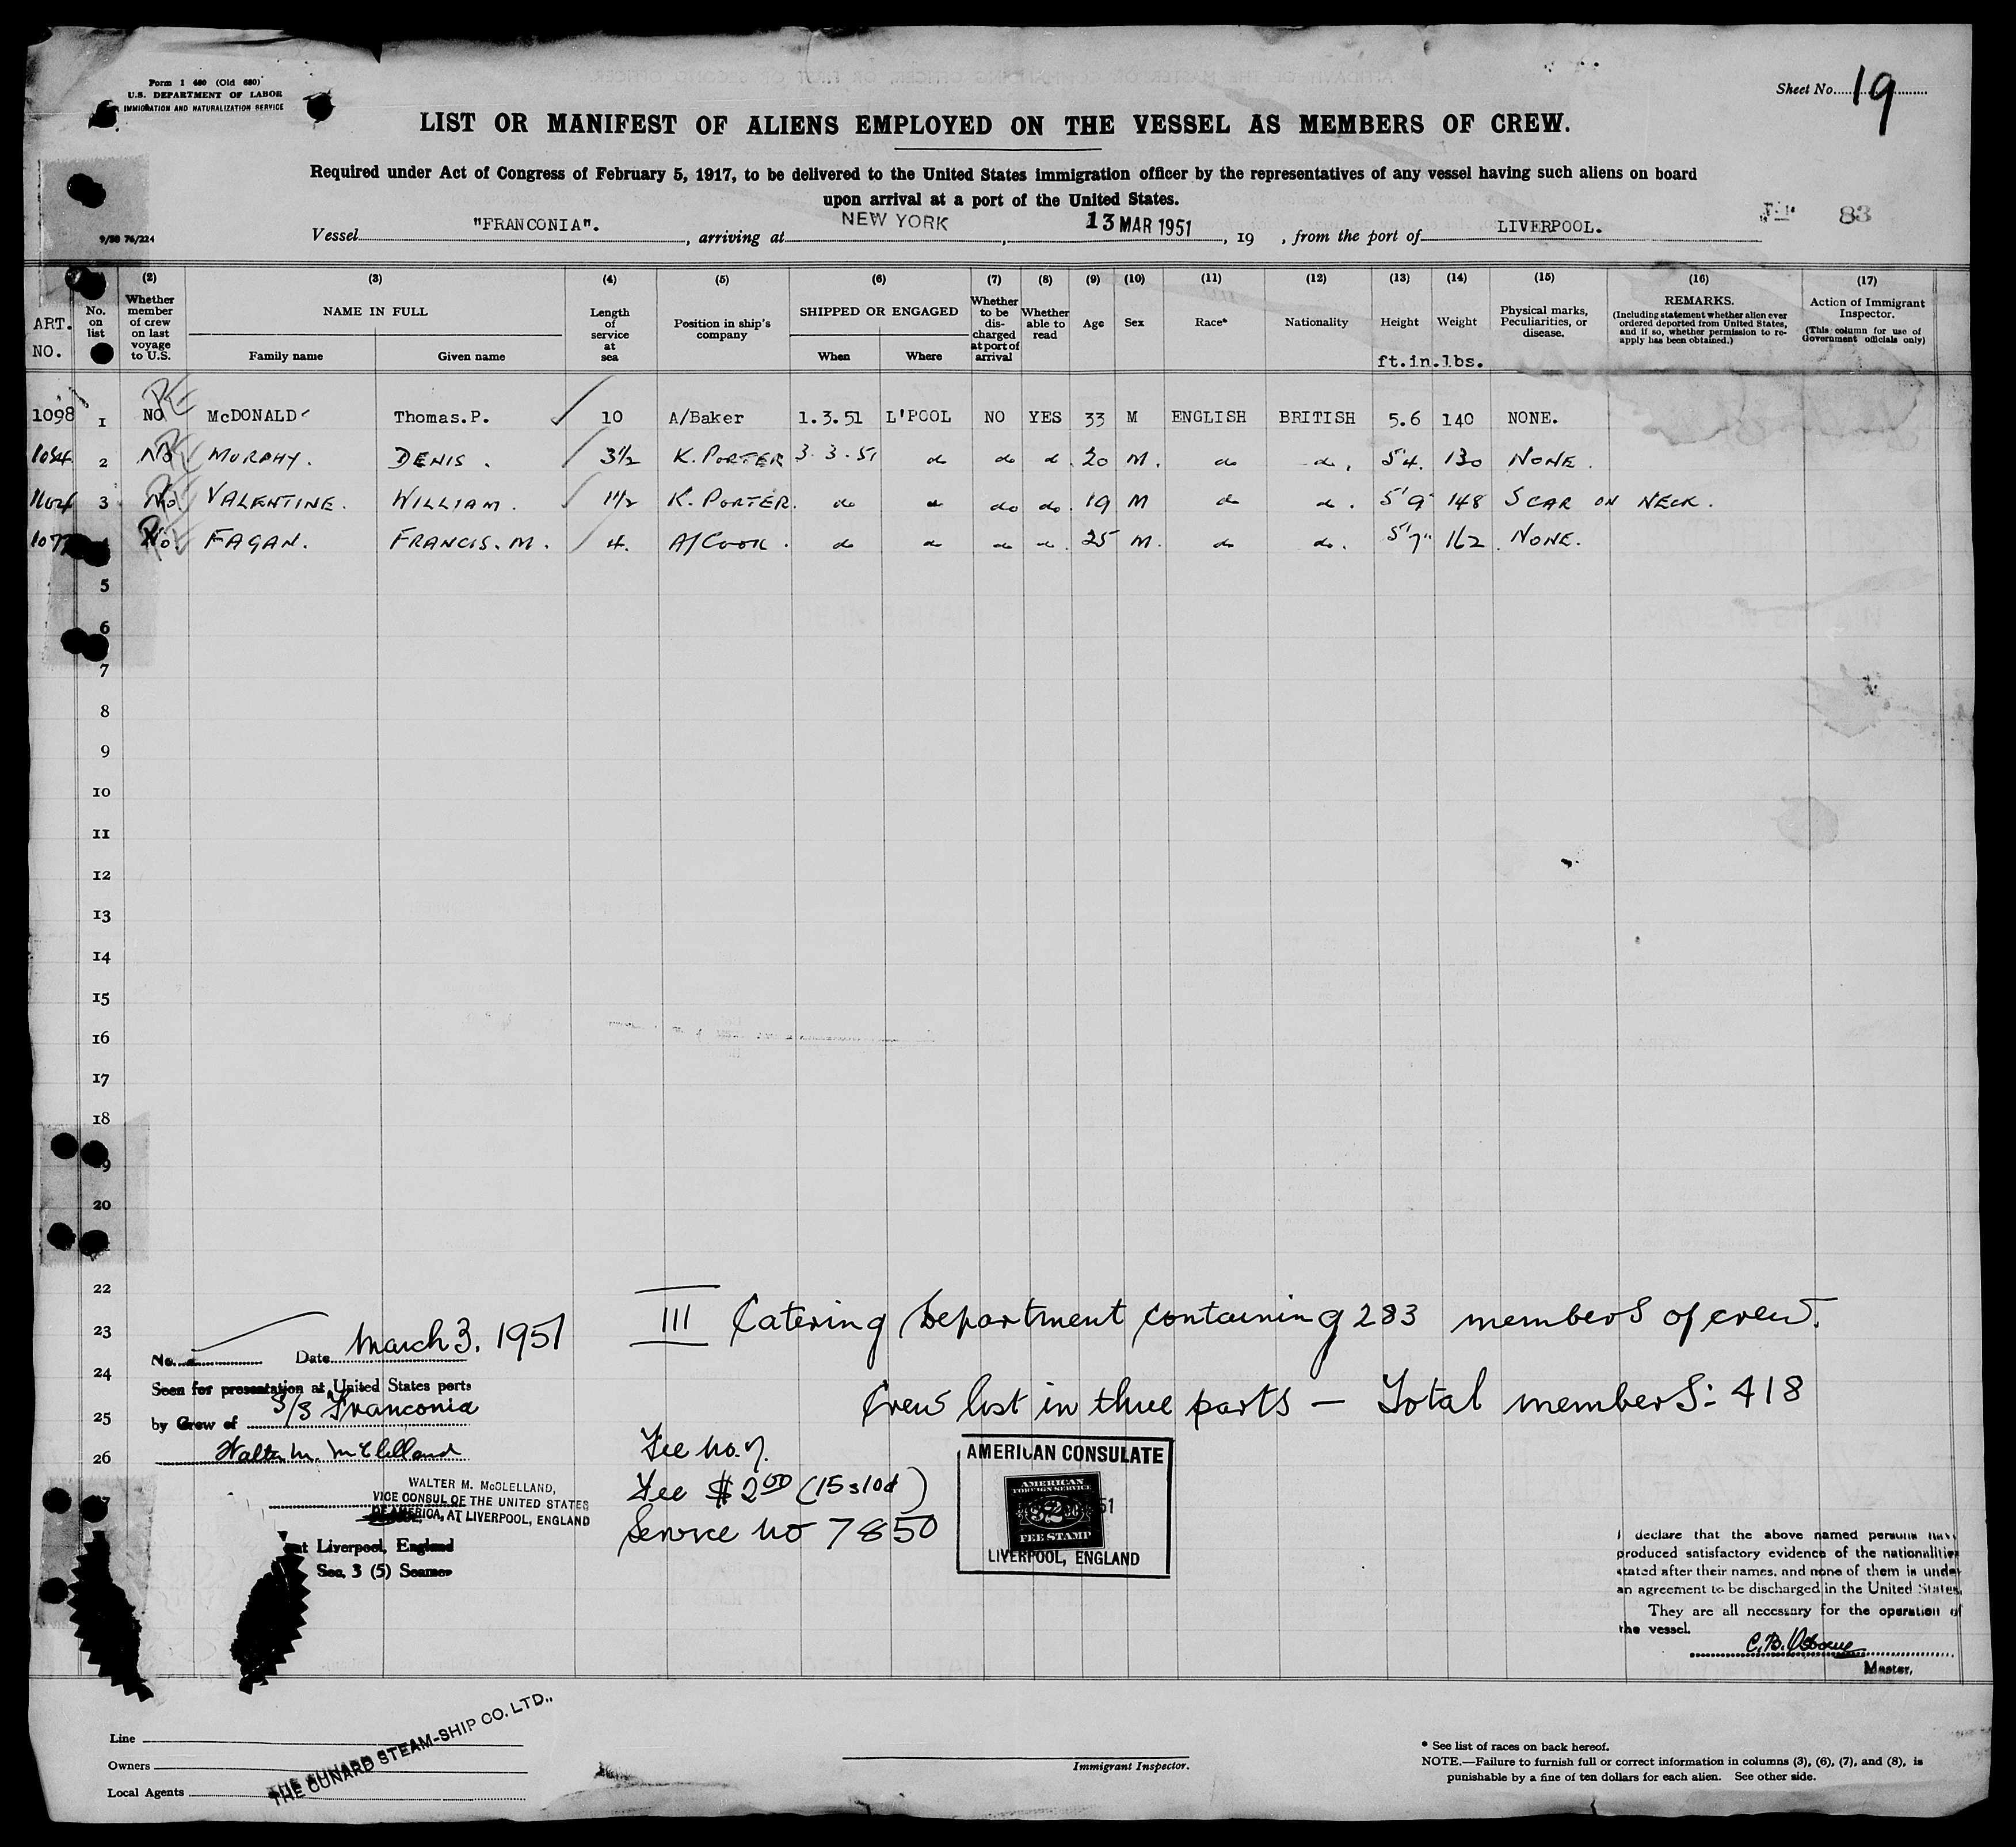 Form I 480 (Old 680)
U.S. DEPARTMENT OF LABOR
IMMIGRATION AND NATURALIZATION SERVICE
Sheet No. 19
LIST OR MANIFEST OF ALIENS EMPLOYED ON THE VESSEL AS MEMBERS OF CREW.
Required under Act of Congress of February 5, 1917, to be delivered to the United States immigration officer by the representatives of any vessel having such aliens on board
upon arrival at a port of the United States.
9/50 76/224
Vessel "FRANCONIA". , arriving at NEW YORK , 13 MAR 1951 , 19 , from the port of LIVERPOOL. 83
ART. NO.
No. on list
(2) Whether member of crew on last voyage to U.S.
(3) NAME IN FULL
Family name
Given name
(4) Length of service at sea
(5) Position in ship's company
(6) SHIPPED OR ENGAGED
When
Where
(7) Whether to be discharged at port of arrival
(8) Whether able to read
(9) Age
(10) Sex
(11) Race*
(12) Nationality
(13) Height
(14) Weight
ft.in.lbs.
(15) Physical marks, Peculiarities, or disease.
(16) REMARKS.
(Including statement whether alien ever ordered deported from United States, and if so, whether permission to re-apply has been obtained.)
(17) Action of Immigrant Inspector.
(This column for use of Government officials only)
1098 1 NO McDONALD Thomas.P. 10 A/Baker 1.3.51 L'POOL NO YES 33 M ENGLISH BRITISH 5.6 140 NONE.
2 No MURPHY. DENIS. 3½ K. PORTER 3.3.51 do do do. 20 M. do do. 5'4. 130 NONE.
3 No VALENTINE. WILLIAM. 1½ K. PORTER. do do do do. 19 M do do. 5'9" 148 SCAR ON NECK.
No FAGAN. FRANCIS. M. 4. A/COOK. do do do do. 25 M. do do. 5'7" 162. NONE.
5
6
7
8
9
10
11
12
13
14
15
16
17
18
19
20
22
23
24
25
26
III Catering Department containing 283 members of crew.
Crew list in three parts — Total members: 418
No. Date March 3, 1951
Seen for presentation at United States ports
by Crew of S/S Franconia
Walter M. McClelland
WALTER M. McCLELLAND,
VICE CONSUL OF THE UNITED STATES
OF AMERICA, AT LIVERPOOL, ENGLAND
at Liverpool, England
Sec. 3 (5) Seamen
Fee no. 7.
Fee $2.00 (15s10d)
Service no 7850
AMERICAN CONSULATE
AMERICAN
FOREIGN SERVICE
$2
FEE STAMP
LIVERPOOL, ENGLAND
I declare that the above named persons have
produced satisfactory evidence of the nationalities
stated after their names, and none of them is under
an agreement to be discharged in the United States.
They are all necessary for the operation of
the vessel.
C.B. Osborne
Master.
Line
Owners
Local Agents
THE CUNARD STEAM-SHIP CO. LTD.,
Immigrant Inspector.
* See list of races on back hereof.
NOTE.—Failure to furnish full or correct information in columns (3), (6), (7), and (8), is
punishable by a fine of ten dollars for each alien. See other side.